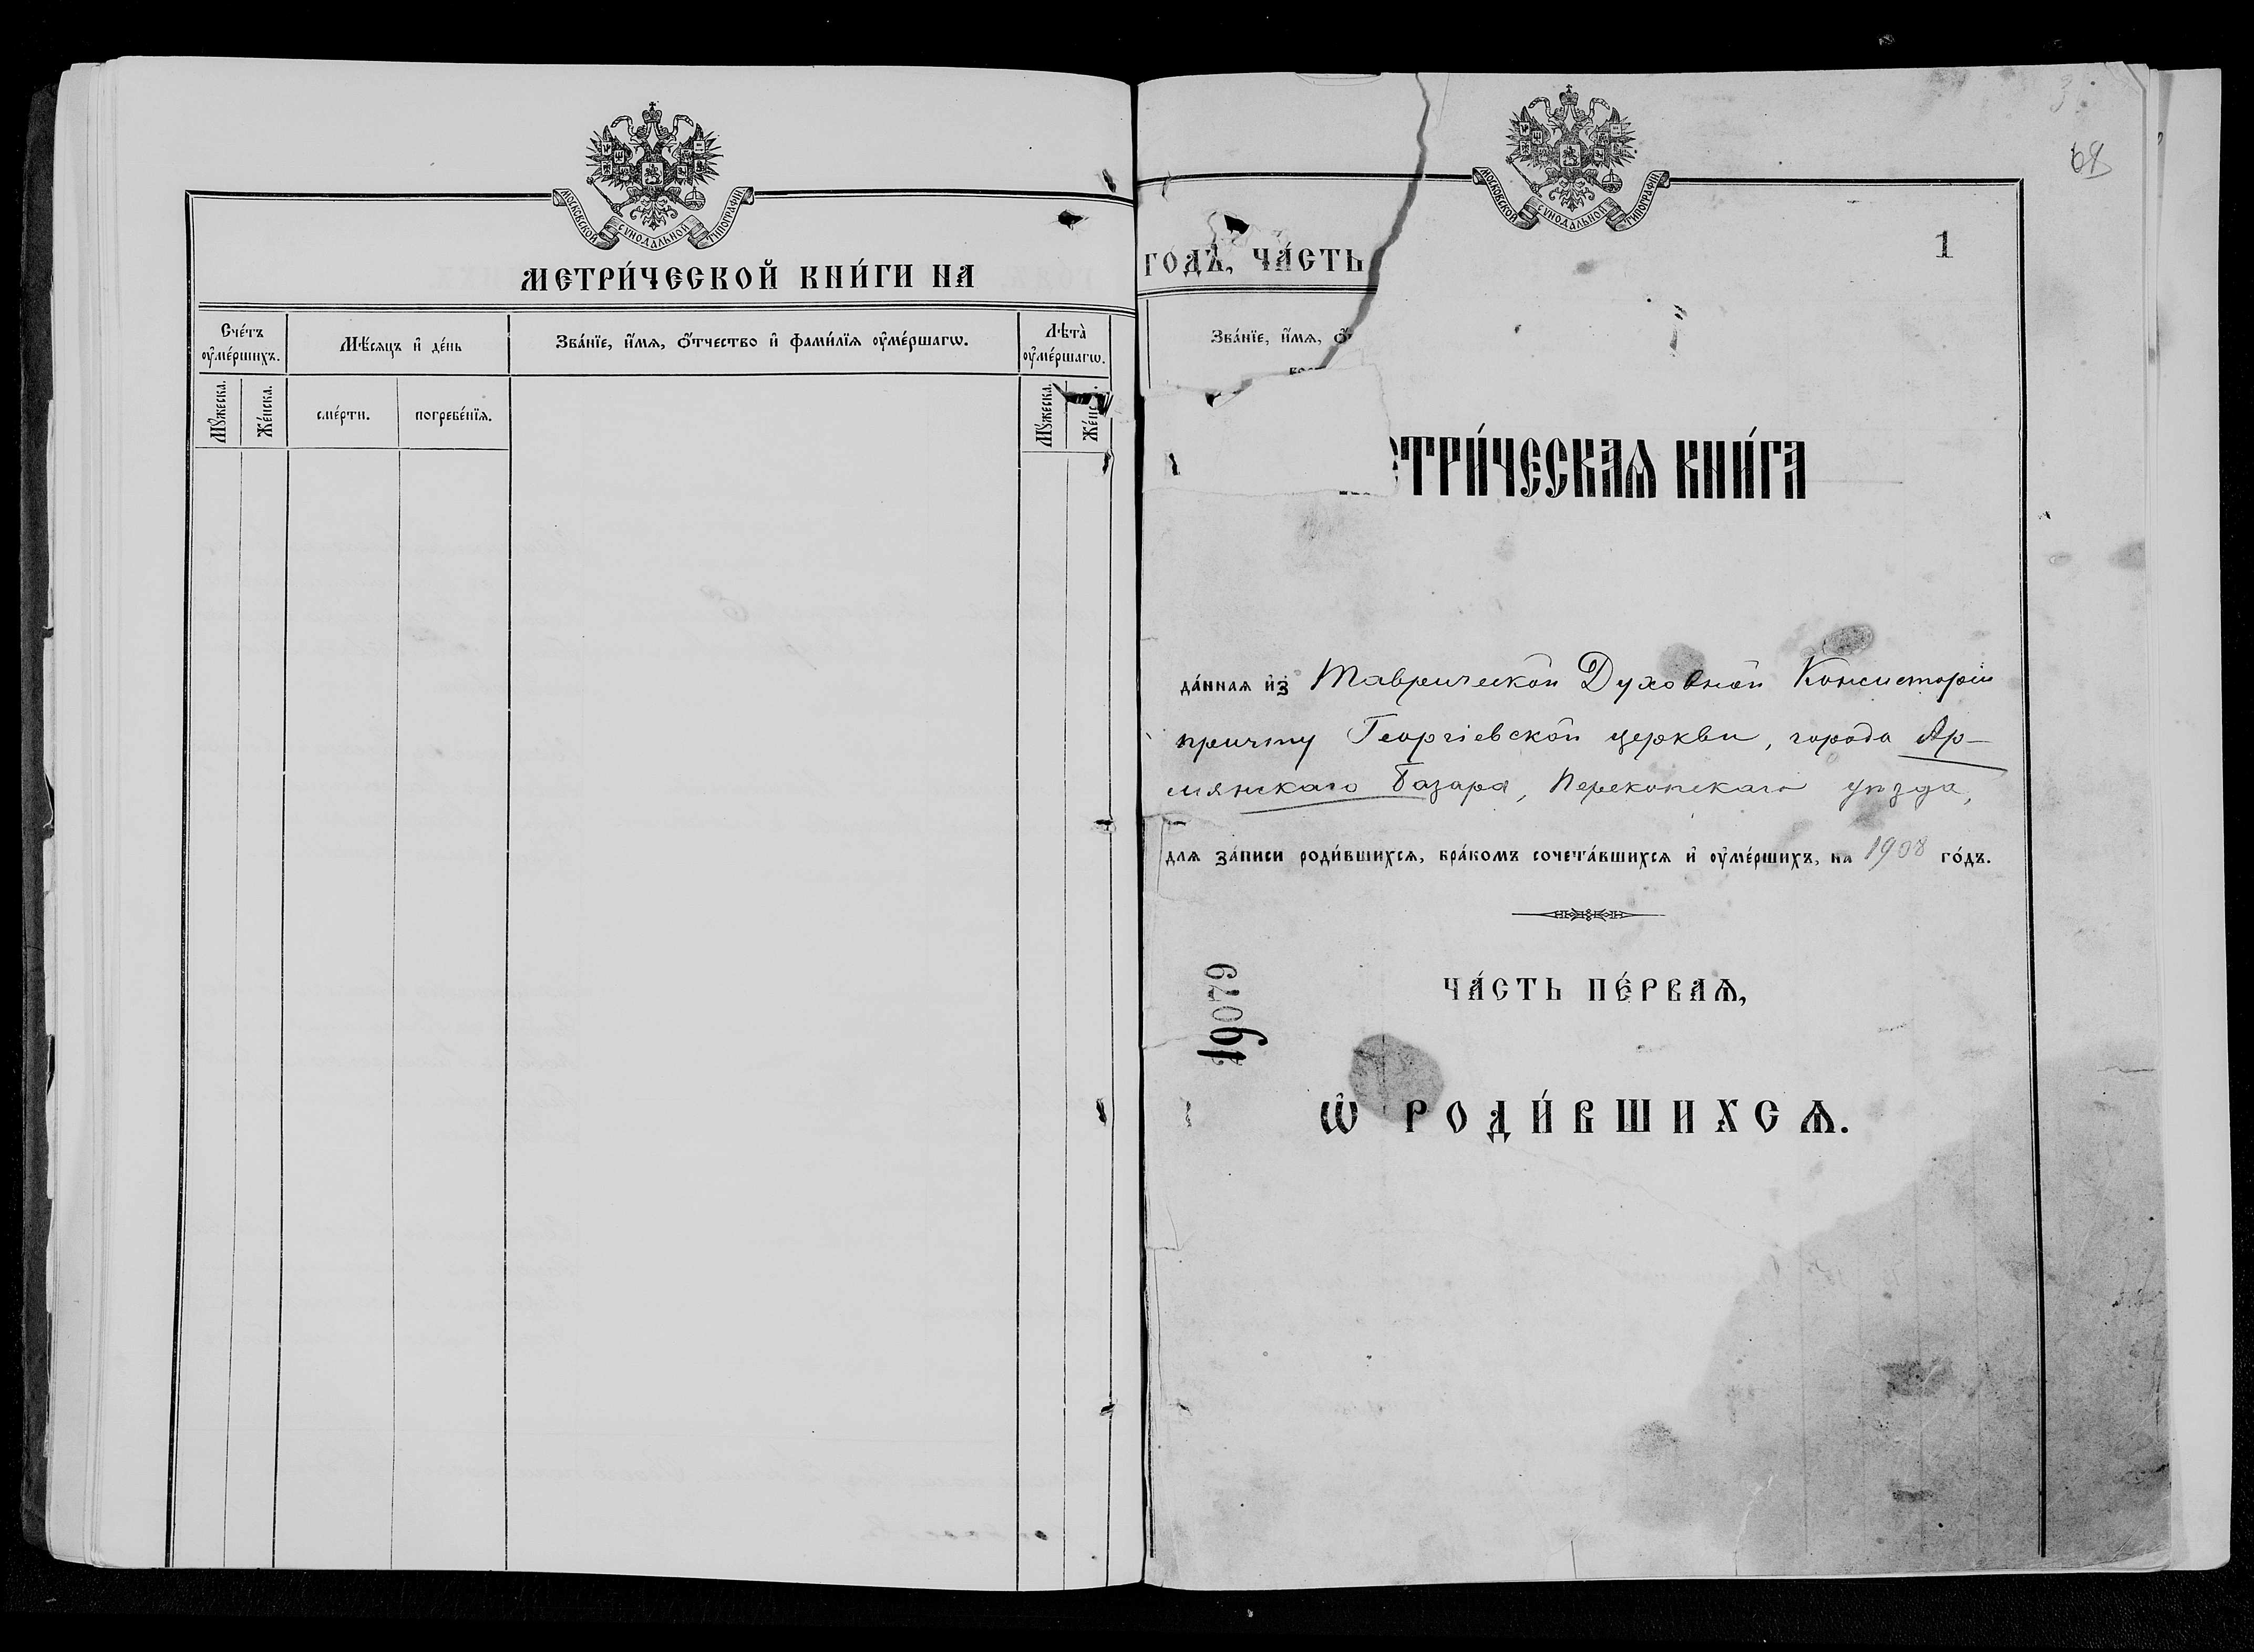 МОСКОВСКОЙ СѴНОДАЛЬНОЙ ТИПОГРАФІИ
МЕТРИ́ЧЕСКОЙ КНИ́ГИ НА
Сче́тъ ѹ҆ме́ршихъ.
Мѣ́сяцъ и҆ де́нь
Зва́нїе, и҆́мѧ, ѻ҆́тчество и҆ фами́лїѧ ѹ҆ме́ршагѡ.
Лѣта̀ ѹ҆ме́ршагѡ.
Мꙋ́жеска.
Же́нска.
сме́рти.
погребе́нїѧ.
Мꙋ́жеска.
Же́нс
3
68
МОСКОВСКОЙ СѴНОДАЛЬНОЙ ТИПОГРАФІИ
1
ГОДЪ, ЧА́СТЬ
Зва́нїе, и҆́мѧ,
ТРИ́ЧЕСКАѦ КНИ́ГА
да́ннаѧ и҆з Таврической Духовной Консисторіи
причту Георгіевской церкви, города Ар-
мянскаго Базара, Перекопскаго уѣзда,
длѧ за́писи роди́вшихсѧ, бра́комъ сочета́вшихсѧ и҆ ѹ҆ме́ршихъ, на 1908 го́дъ.
ЧА́СТЬ ПЕ́РВАѦ,
6709
Ѡ҆ РОДИ́ВШИХСѦ.